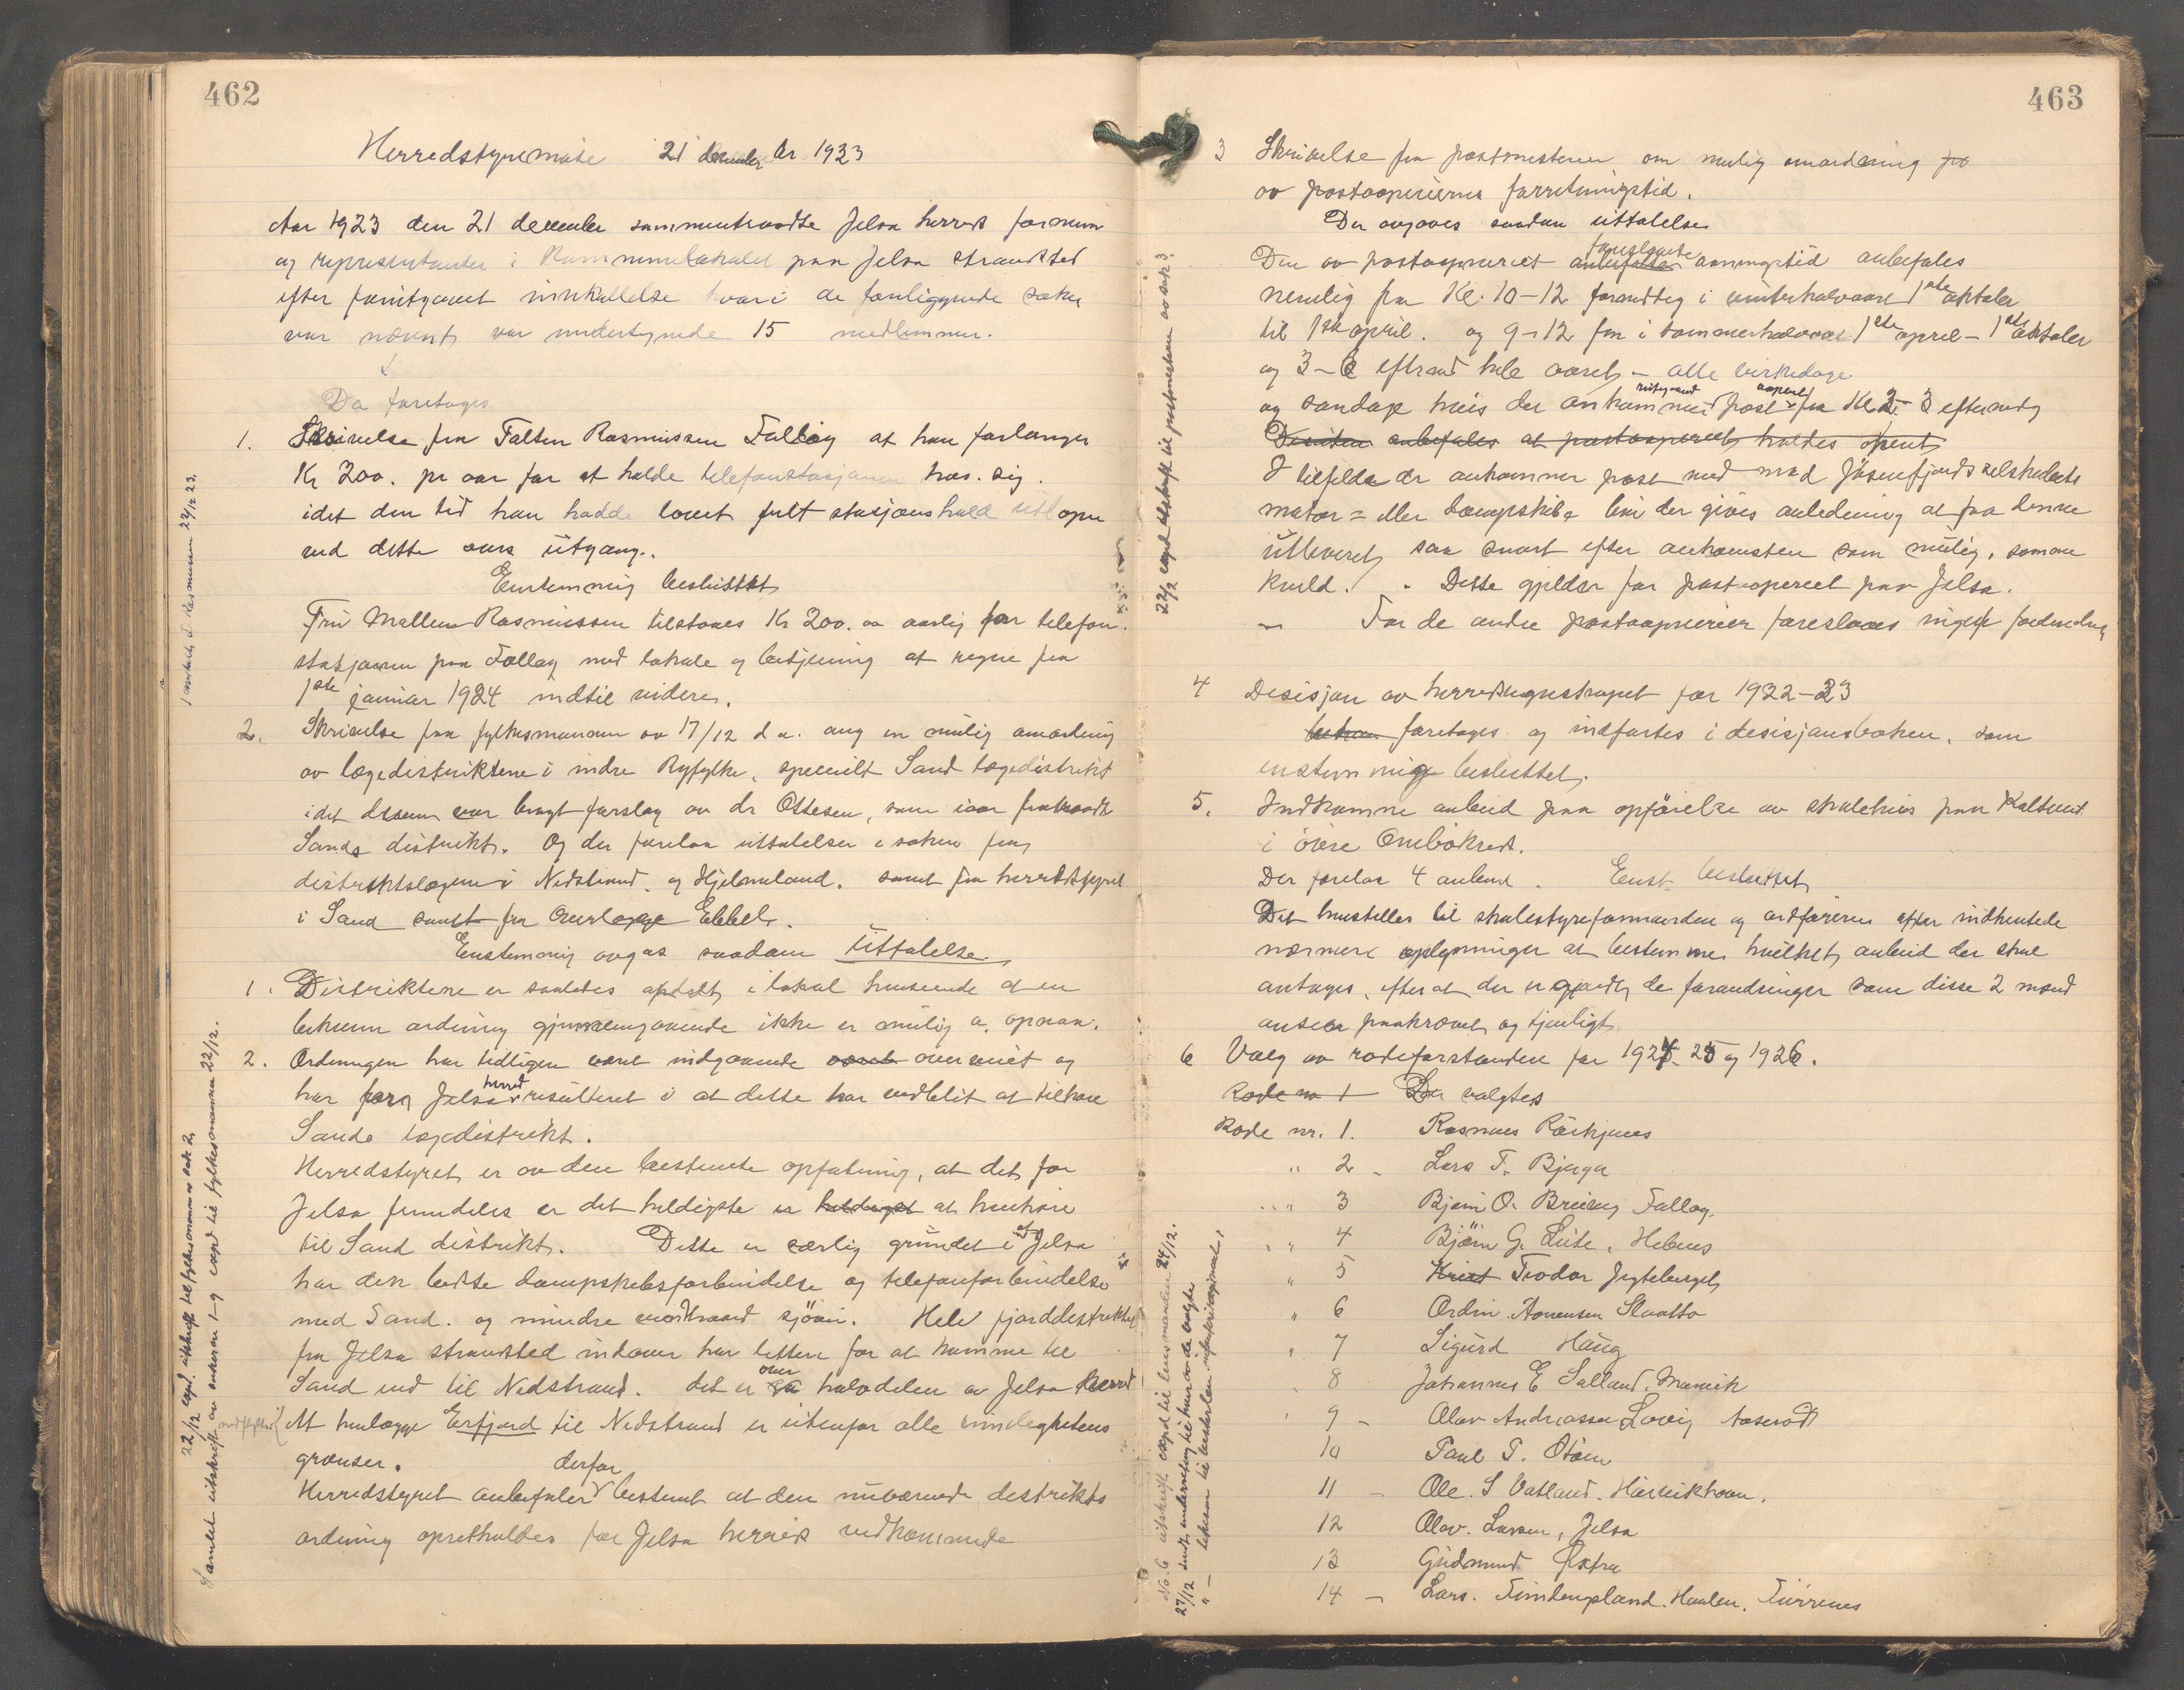 462
Herredstyremøte 21 december År 1923
Aar 1923 den 21 december sammentraadte Jelsa herreds formenn
og representanter i Kommunelokalet paa Jelsa strandsted
efter forutgaaet innkallelse hvori de foreliggende saker
var nævnt var undertegnede 15 medlemmer.
Da foretages
1. Skrivelse fra Falten Rasmussen Foldøy at han forlanger
Kr 200. pr aar for at holde telefonstasjonen hos sig.
idet den tid han hadde lovet frit stasjonshold utløper
ved dette aars utgang.
Enstemmig besluttet
Fru Mallene Rasmussen tilstaaes Kr 200. aarlig for telefon-
stasjonen paa Foldøy med lokale og betjening at regne fra
1ste januar 1924 indtil videre.
2. Skrivelse fra fylkesmannen av 17/12 d a. ang en mulig omordning
av lægedistriktene i indre Ryfylke, specielt Sand lægedistrikt
idet dessen var bragt forslag av dr Ottesen, som iaar fratraadte
Sands distrikt. Og der forelaa uttalelser i saken fra
distriktslægene i Nedstrand og Hjelmeland. samt fra herredstyret
i Sand samt fra Overlæge Ebbel.
Enstemmig avgas saadan Uttalelse
1. Distriktene er saaledes opdelt, i lokal henseende at en
bekvem ordning gjennemgaaende ikke er mulig a. opnaa.
2. Ordningen har tidligere været indgaaende været overveiet og
har for Jelsa herred resulteret i at dette har vedblit at tilhøre
Sands lægedistrikt.
Herredstyret er av den bestemte opfatning, at det for
Jelsa fremdeles er det heldigste er heldigst at henhøre
til Sand distrikt. Dette er særlig grundet i at Jelsa
har den bedste dampskibsforbindelse og telefonforbindelse
med Sand. og mindre motstand sjøvei. Hele fjorddistriktet
fra Jelsa strandsted indover har lettere for at komme til
Sand end til Nedstrand. det er over halvdelen av Jelsa herred
At henlægge Erfjord til Nedstrand er utenfor alle rimelighetens
grænser.
Herredstyret anbefaler derfor bestemt at den nuværende distrikts
ordning opretholdes for Jelsa herred vedkommende
22/12 exped. utskrift til fylkesmannen av sak 2.
Samlet utskrift av sakerne 1-9 exped til fylkesmannen 22/12.
463
3 Skrivelse fra postmesteren om mulig omordning fra
av postaapneriernes forretningstid.
Der avgaves saadan uttalelse
Den av postaapneriet anbefalte foreslaaede aapningstid anbefales
nemlig fra Kl. 10-12 formidag i vinterhalvaaret 1ste oktober
til 1ste april. og 9-12 fm i sommerhalvaaret 1ste april - 1ste oktober
og 3-6 eftermid hele aaret - alle virkedage
og søndage hvis der ankommer rutegaaende post aapent fra Kl 2-3 eftermidg
Desuten anbefales at postaapneriet holdes aapent
I tilfelde der ankommer post med Jøsenfjords selskabets
motor= eller dampskibe bør der gives anledning at faa denne
utleveret saa snart efter ankomsten som mulig. samme
kveld. Dette gjelder for postaapneriet paa Jelsa.
For de andre postaapnerier foreslaaes ingen forandring
22/12 exped utskrift til postmesteren av sak 3.
4 Desisjon av herredsregnskapet for 1922-23
foretages og indførtes i desisjonsboken, som
enstemmig besluttet.
5. Indkomne anbud paa opførelse av skolehus paa Kaltveit
i øvre Ombokreds.
Der forelaa 4 anbud. Enst. besluttet
Det henstilles til skolestyreformanden og ordføreren efter indhentede
nærmere oplysninger at bestemme hvilket anbud der skal
antages, efter at der er gjordt de forandringer som disse 2 mænd
anser paakrævet og tjenligt
6 Valg av rodeforstandere for 1924-25 og 1926.
Rode no 1 Der valgtes
Rode nr. 1. Rasmus Røikjenes
" 2 - Lars T. Bjerga
" 3 Bjørn O. Breivy Foldøy.
" 4 Bjørn G. Lute, Hebnes
" 5 Krist Teodor Jegteberget
" 6 Ordin Aanensen Slaatto
" 7 Sigurd Haug
" 8 Johannes E Salland. Marvik
" 9 - Olav Andreassen Lovig Aaserød
10 Paul P. Otøen
11 - Ole. S Vatland.
12 Olav. Larsen, Jelsa
13 Gudmund Østra
14 - Lars.
No. 6 utskrift exped til lensmanden 24/12.
27/12 sendt underretning til hver av de valgte